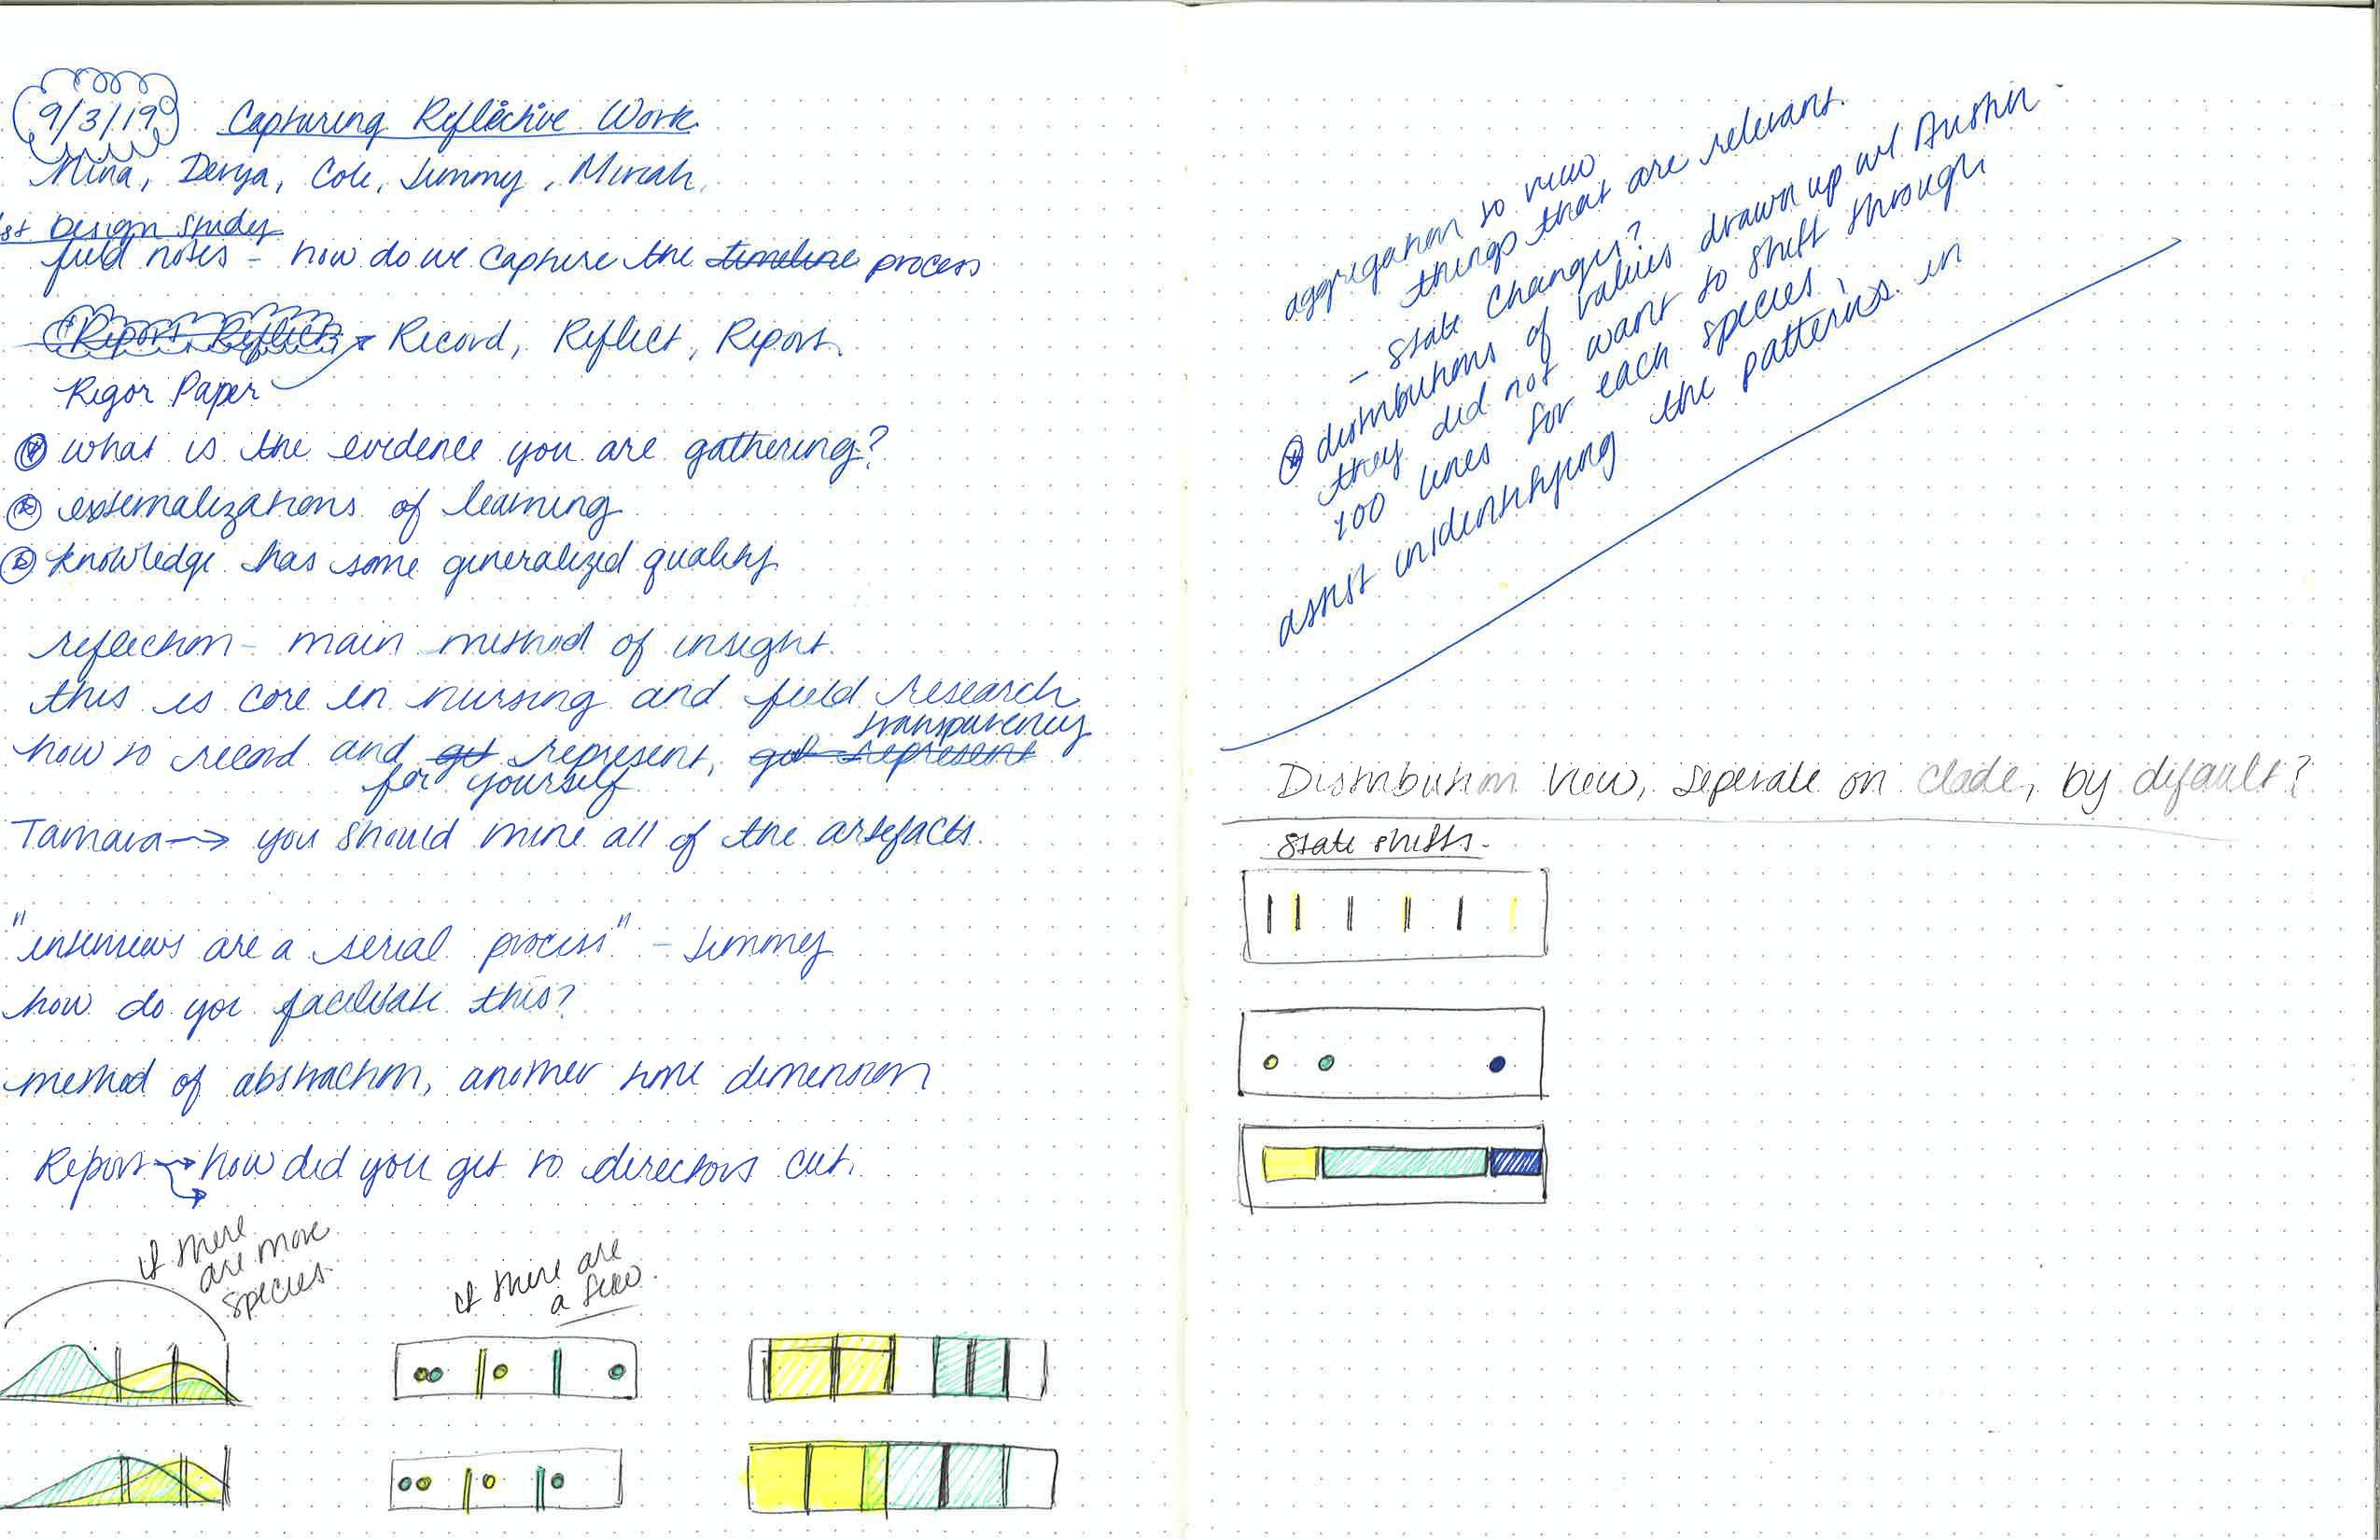 9/3/19 Capturing Reflective Work
Nina, Derya, Cole, Jimmy, Miriah,
st Design Study
field notes - how do we capture the timeline process
Report, Reflect, Record, Reflect, Report.
Rigor Paper
what is the evidence you are gathering?
externalizations of learning
knowledge has some generalized quality
reflection - main method of insight.
this is core in nursing and field research
transparency
how to record and get represent, get represent
for yourself
Tamara → you should mine all of the artefacts.
"interviews are a serial process" - Jimmy
how do you facilitate this?
method of abstraction, another time dimension
Report → how did you get to directors cut.
if there
are more
species.
if there are
a few.
aggregation to view
things that are relevant.
- state changes?
distributions of values drawn up w/ Austin -
they did not want to shift through
100 lines for each species,
assist in identifying the patterns in
Distribution view, seperate on clade, by default?
State shifts.